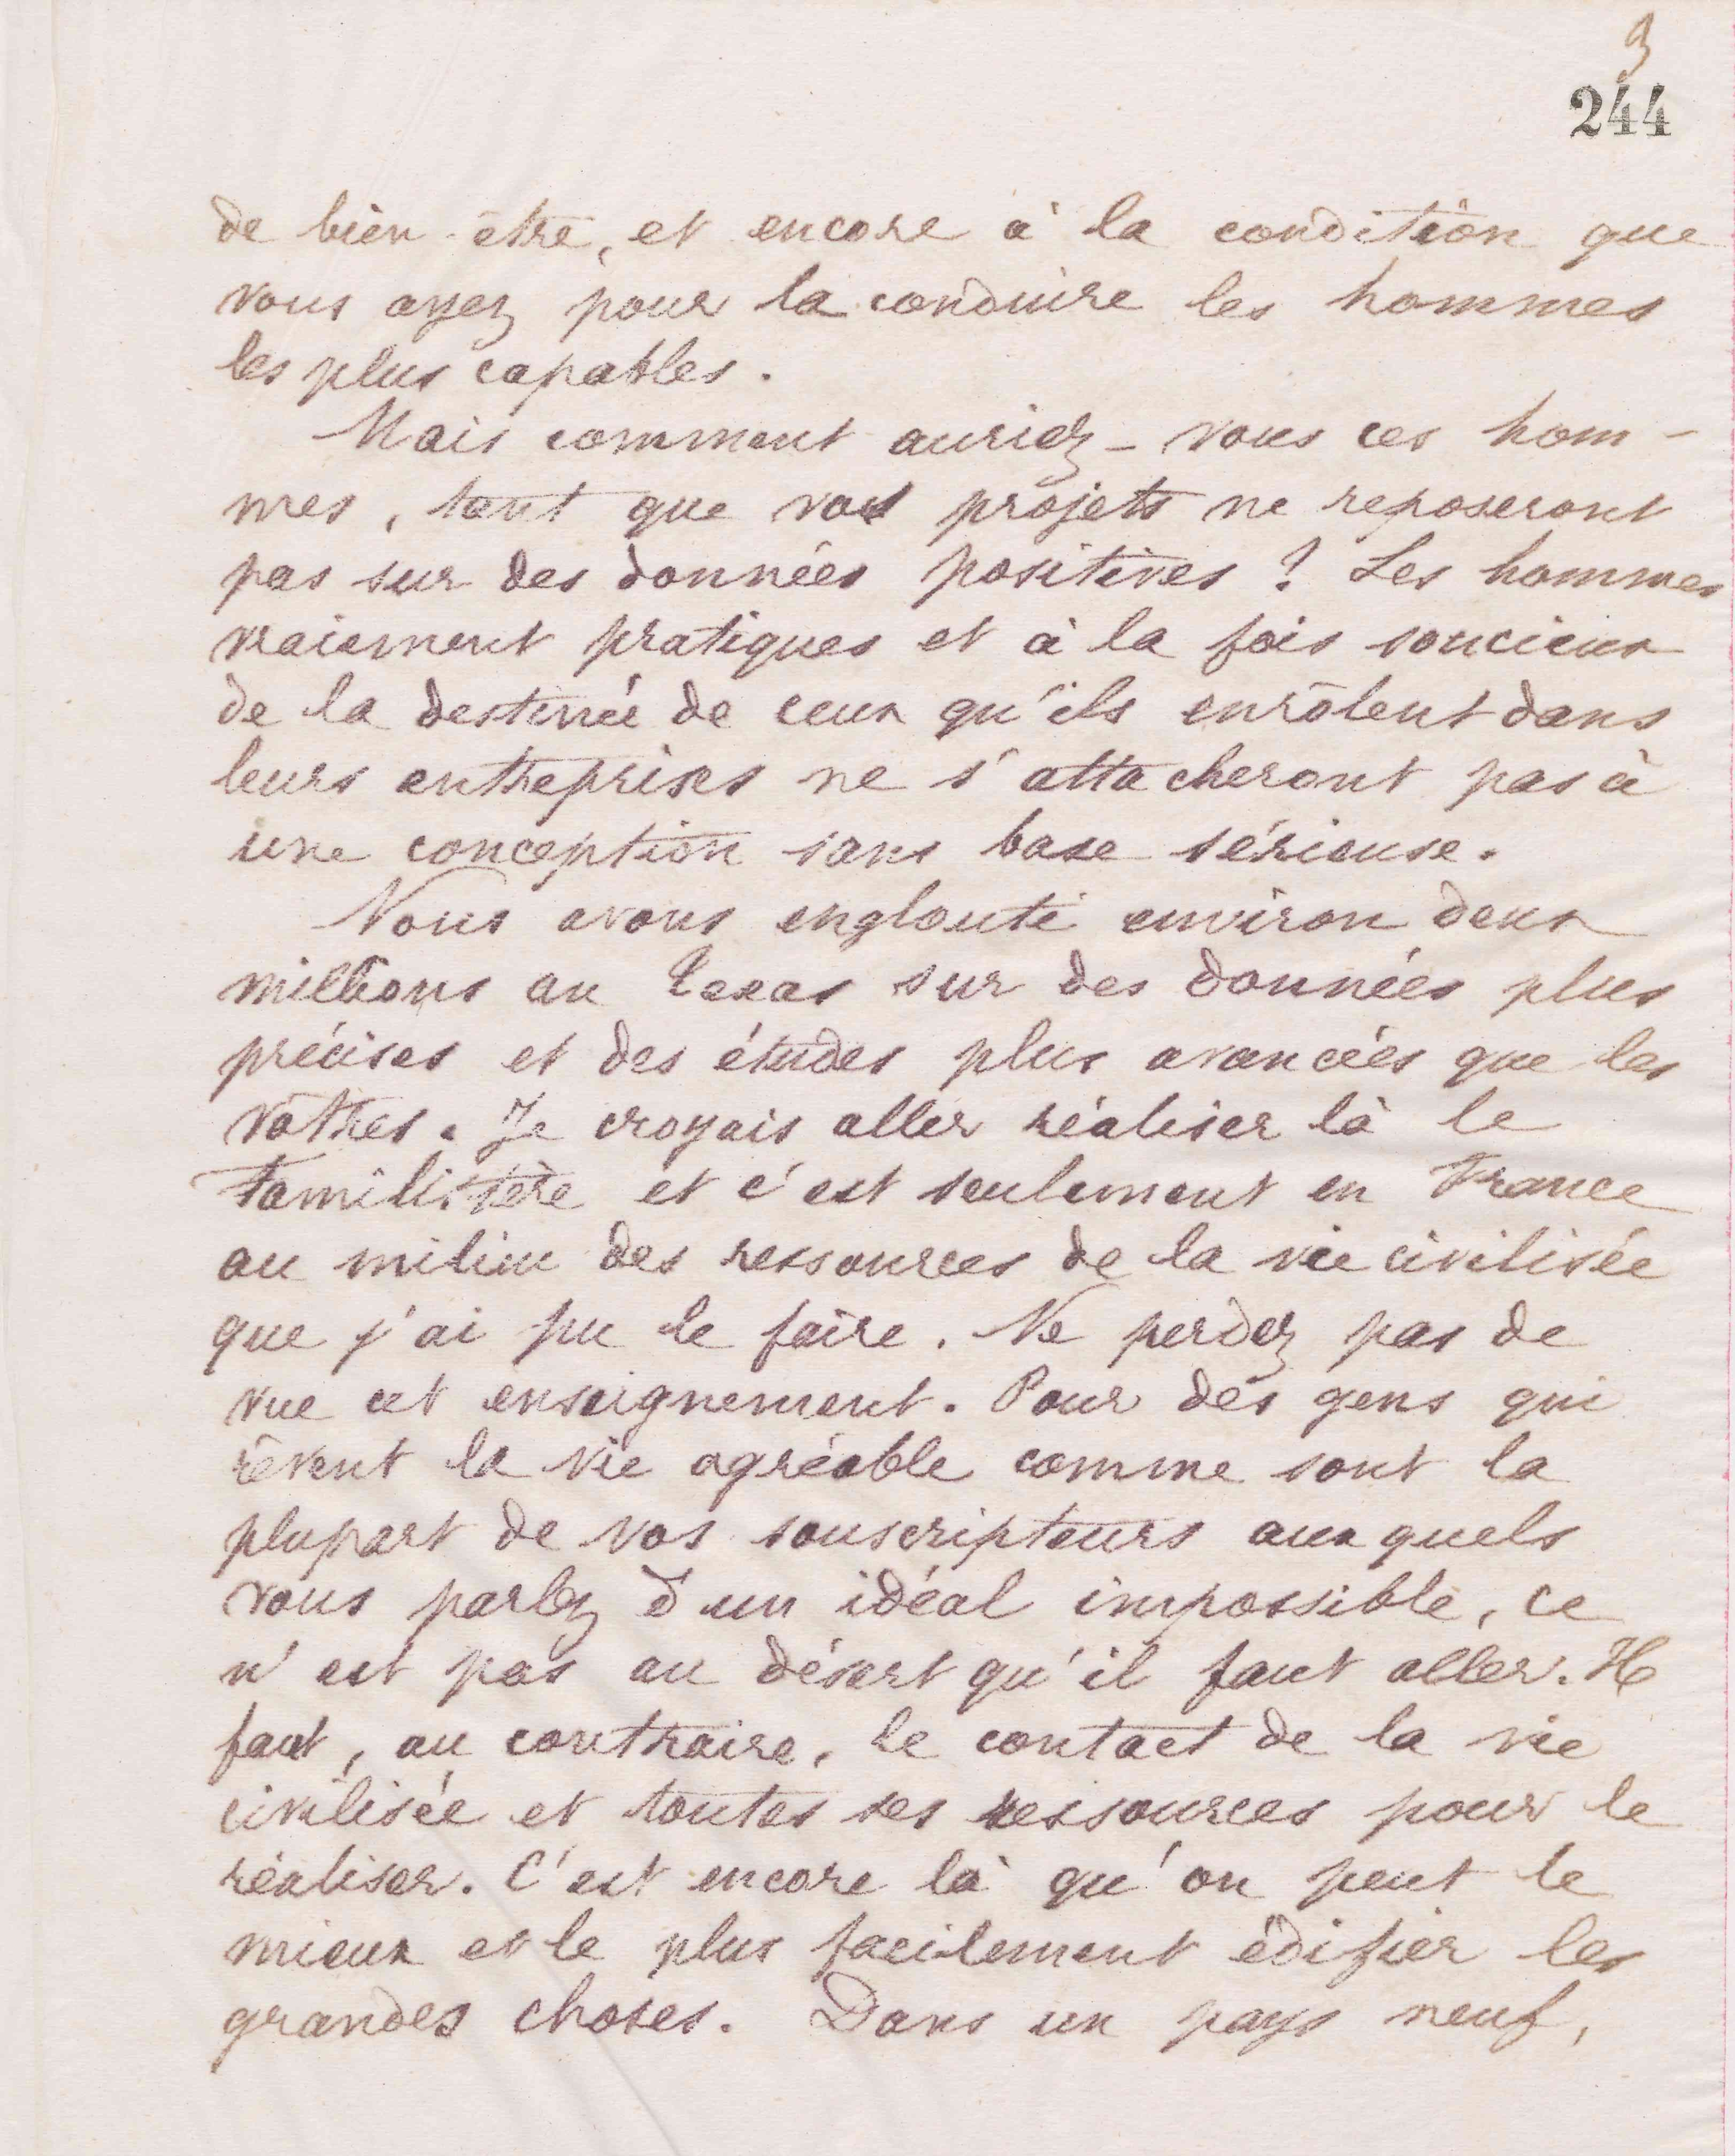 3
244
de bien-être, et encore à la condition que
vous ayez pour la conduire les hommes
les plus capables.
Mais comment auriez-vous ces hom-
mes, tant que vos projets ne reposeront
pas sur des données positives ? Les hommes
vraiement pratiques et à la fois soucieux
de la destinée de ceux qu'ils enrôlent dans
leurs entreprises ne s'attacheront pas à
une conception sans base sérieuse.
Nous avons englouti environ deux
millions au Texas sur des données plus
précises et des études plus avancées que les
vôtres. Je croyais aller réaliser là le
Familistère et c'est seulement en France
au milieu des ressources de la vie civilisée
que j'ai pu le faire. Ne perdez pas de
vue cet enseignement. Pour des gens qui
rêvent la vie agréable comme sont la
plupart de vos souscripteurs auxquels
vous parlez d'un idéal impossible, ce
n'est pas au désert qu'il faut aller. Il
faut, au contraire, le contact de la vie
civilisée et toutes ses ressources pour le
réaliser. C'est encore là qu'on peut le
mieux et le plus facilement édifier les
grandes choses. Dans un pays neuf,